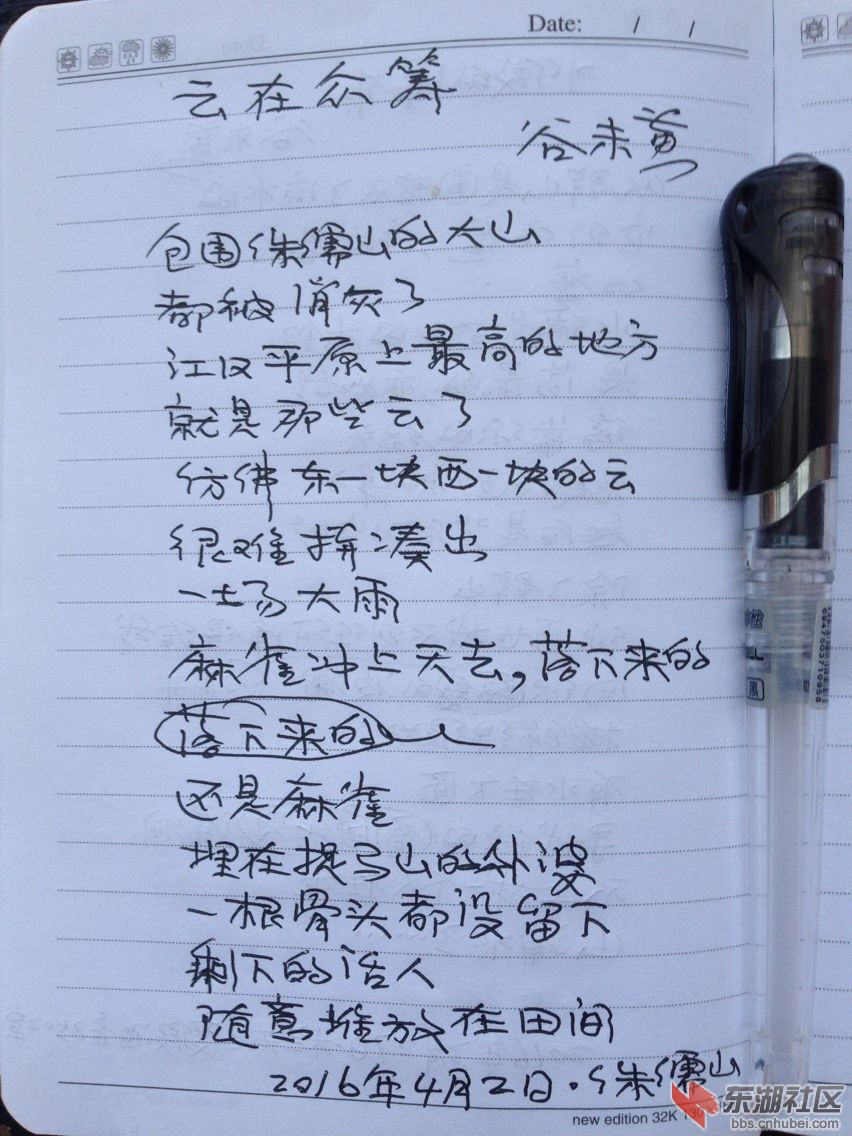 Date: / /
云在众筹
谷未黄
包围侏儒山的大山
都被削灰了
江汉平原上最高的地方
就是那些云了
仿佛东一块西一块的云
很难拼凑出
一场大雨
麻雀冲上天去，落下来的
落下来的
还是麻雀
埋在提马山的外婆
一根骨头都没留下
剩下的活人
随意堆放在田间
2016年4月2日·侏儒山
new edition 32K
6947503710958
黑
东湖社区
bbs.cnhubei.com